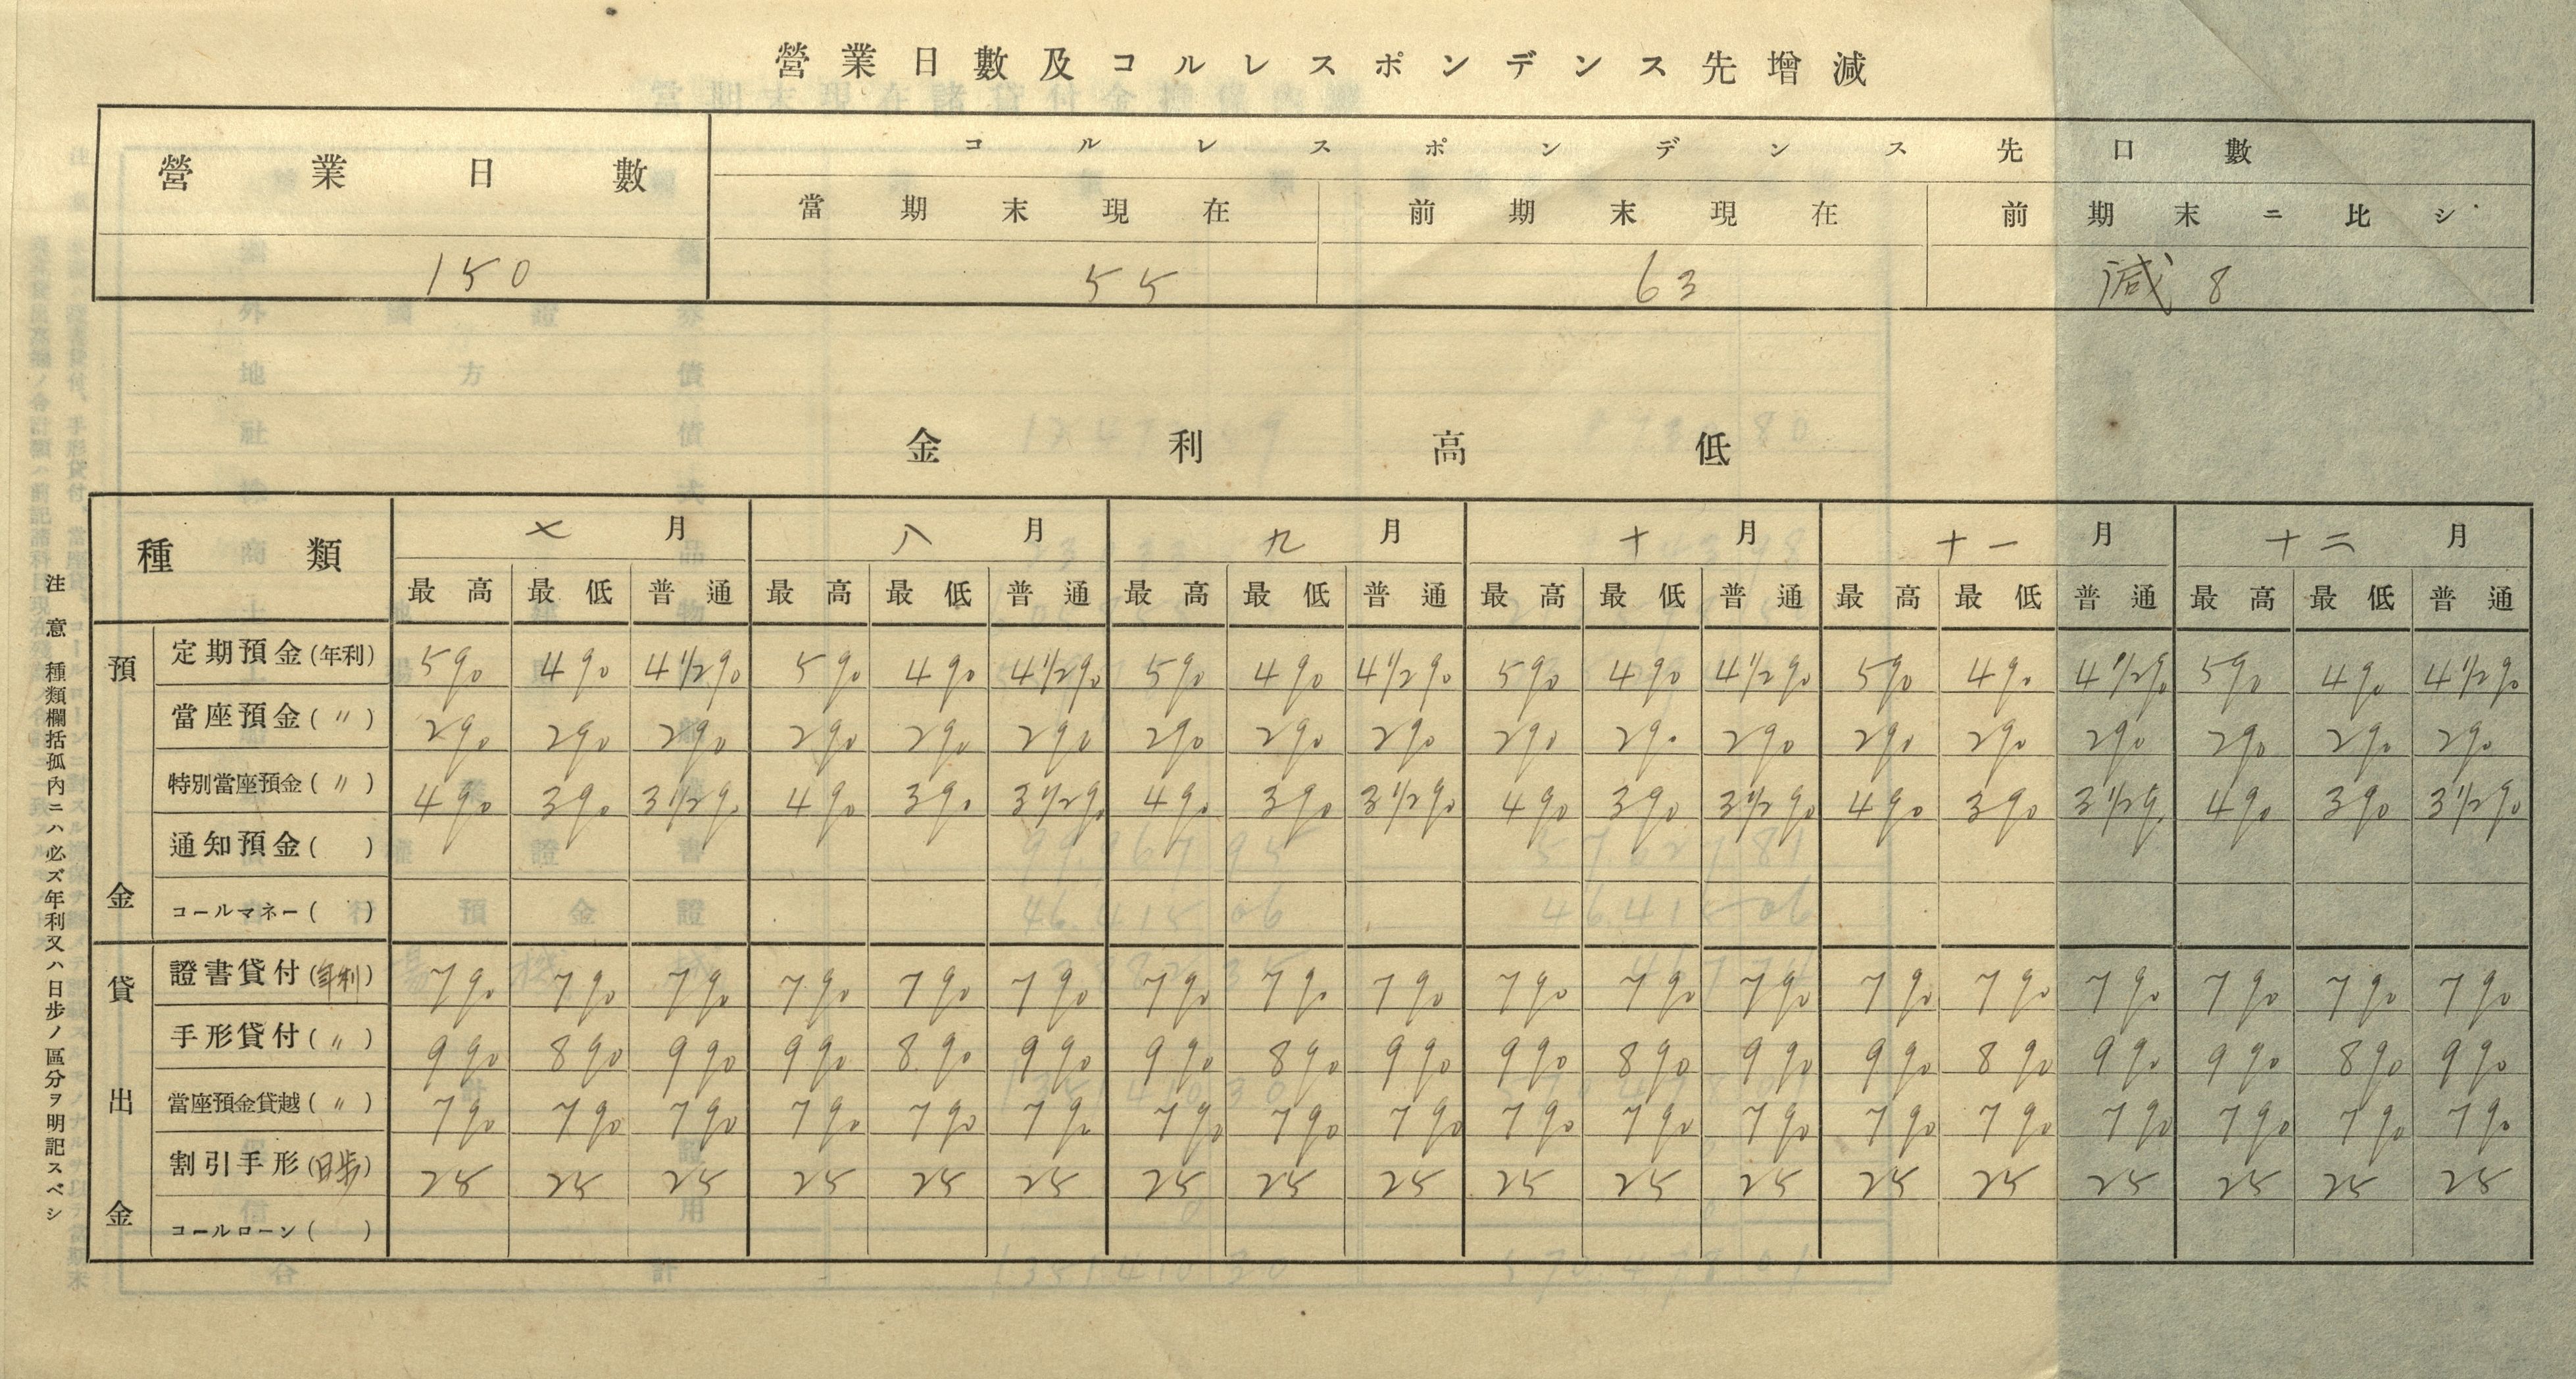 營業日數及コルレスポンデンス先增減
營業日數 コルレスポンデンス先口數
當期末現在 前期末現在 前期末ニ比シ
150 55 63 減 8
金利高低
種類 七月 八月 九月 十月 十一月 十二月
最高 最低 普通 最高 最低 普通 最高 最低 普通 最高 最低 普通 最高 最低 普通 最高 最低 普通
預金
定期預金(年利) 5% 4% 4 1/2% 5% 4% 4 1/2% 5% 4% 4 1/2% 5% 4% 4 1/2% 5% 4% 4 1/2% 5% 4% 4 1/2%
當座預金(〃) 2% 2% 2% 2% 2% 2% 2% 2% 2% 2% 2% 2% 2% 2% 2% 2% 2% 2%
特別當座預金(〃) 4% 3% 3 1/2% 4% 3% 3 1/2% 4% 3% 3 1/2% 4% 3% 3 1/2% 4% 3% 3 1/2% 4% 3% 3 1/2%
通知預金( )
コールマネー( )
貸出金
證書貸付(年利) 7% 7% 7% 7% 7% 7% 7% 7% 7% 7% 7% 7% 7% 7% 7% 7% 7% 7%
手形貸付(〃) 9% 8% 9% 9% 8% 9% 9% 8% 9% 9% 8% 9% 9% 8% 9% 9% 8% 9%
當座預金貸越(〃) 7% 7% 7% 7% 7% 7% 7% 7% 7% 7% 7% 7% 7% 7% 7% 7% 7% 7%
割引手形(日歩) 25 25 25 25 25 25 25 25 25 25 25 25 25 25 25 25 25 25
コールローン( )
注意 種類欄括孤內ニハ必ズ年利又ハ日步ノ區分ヲ明記スベシ